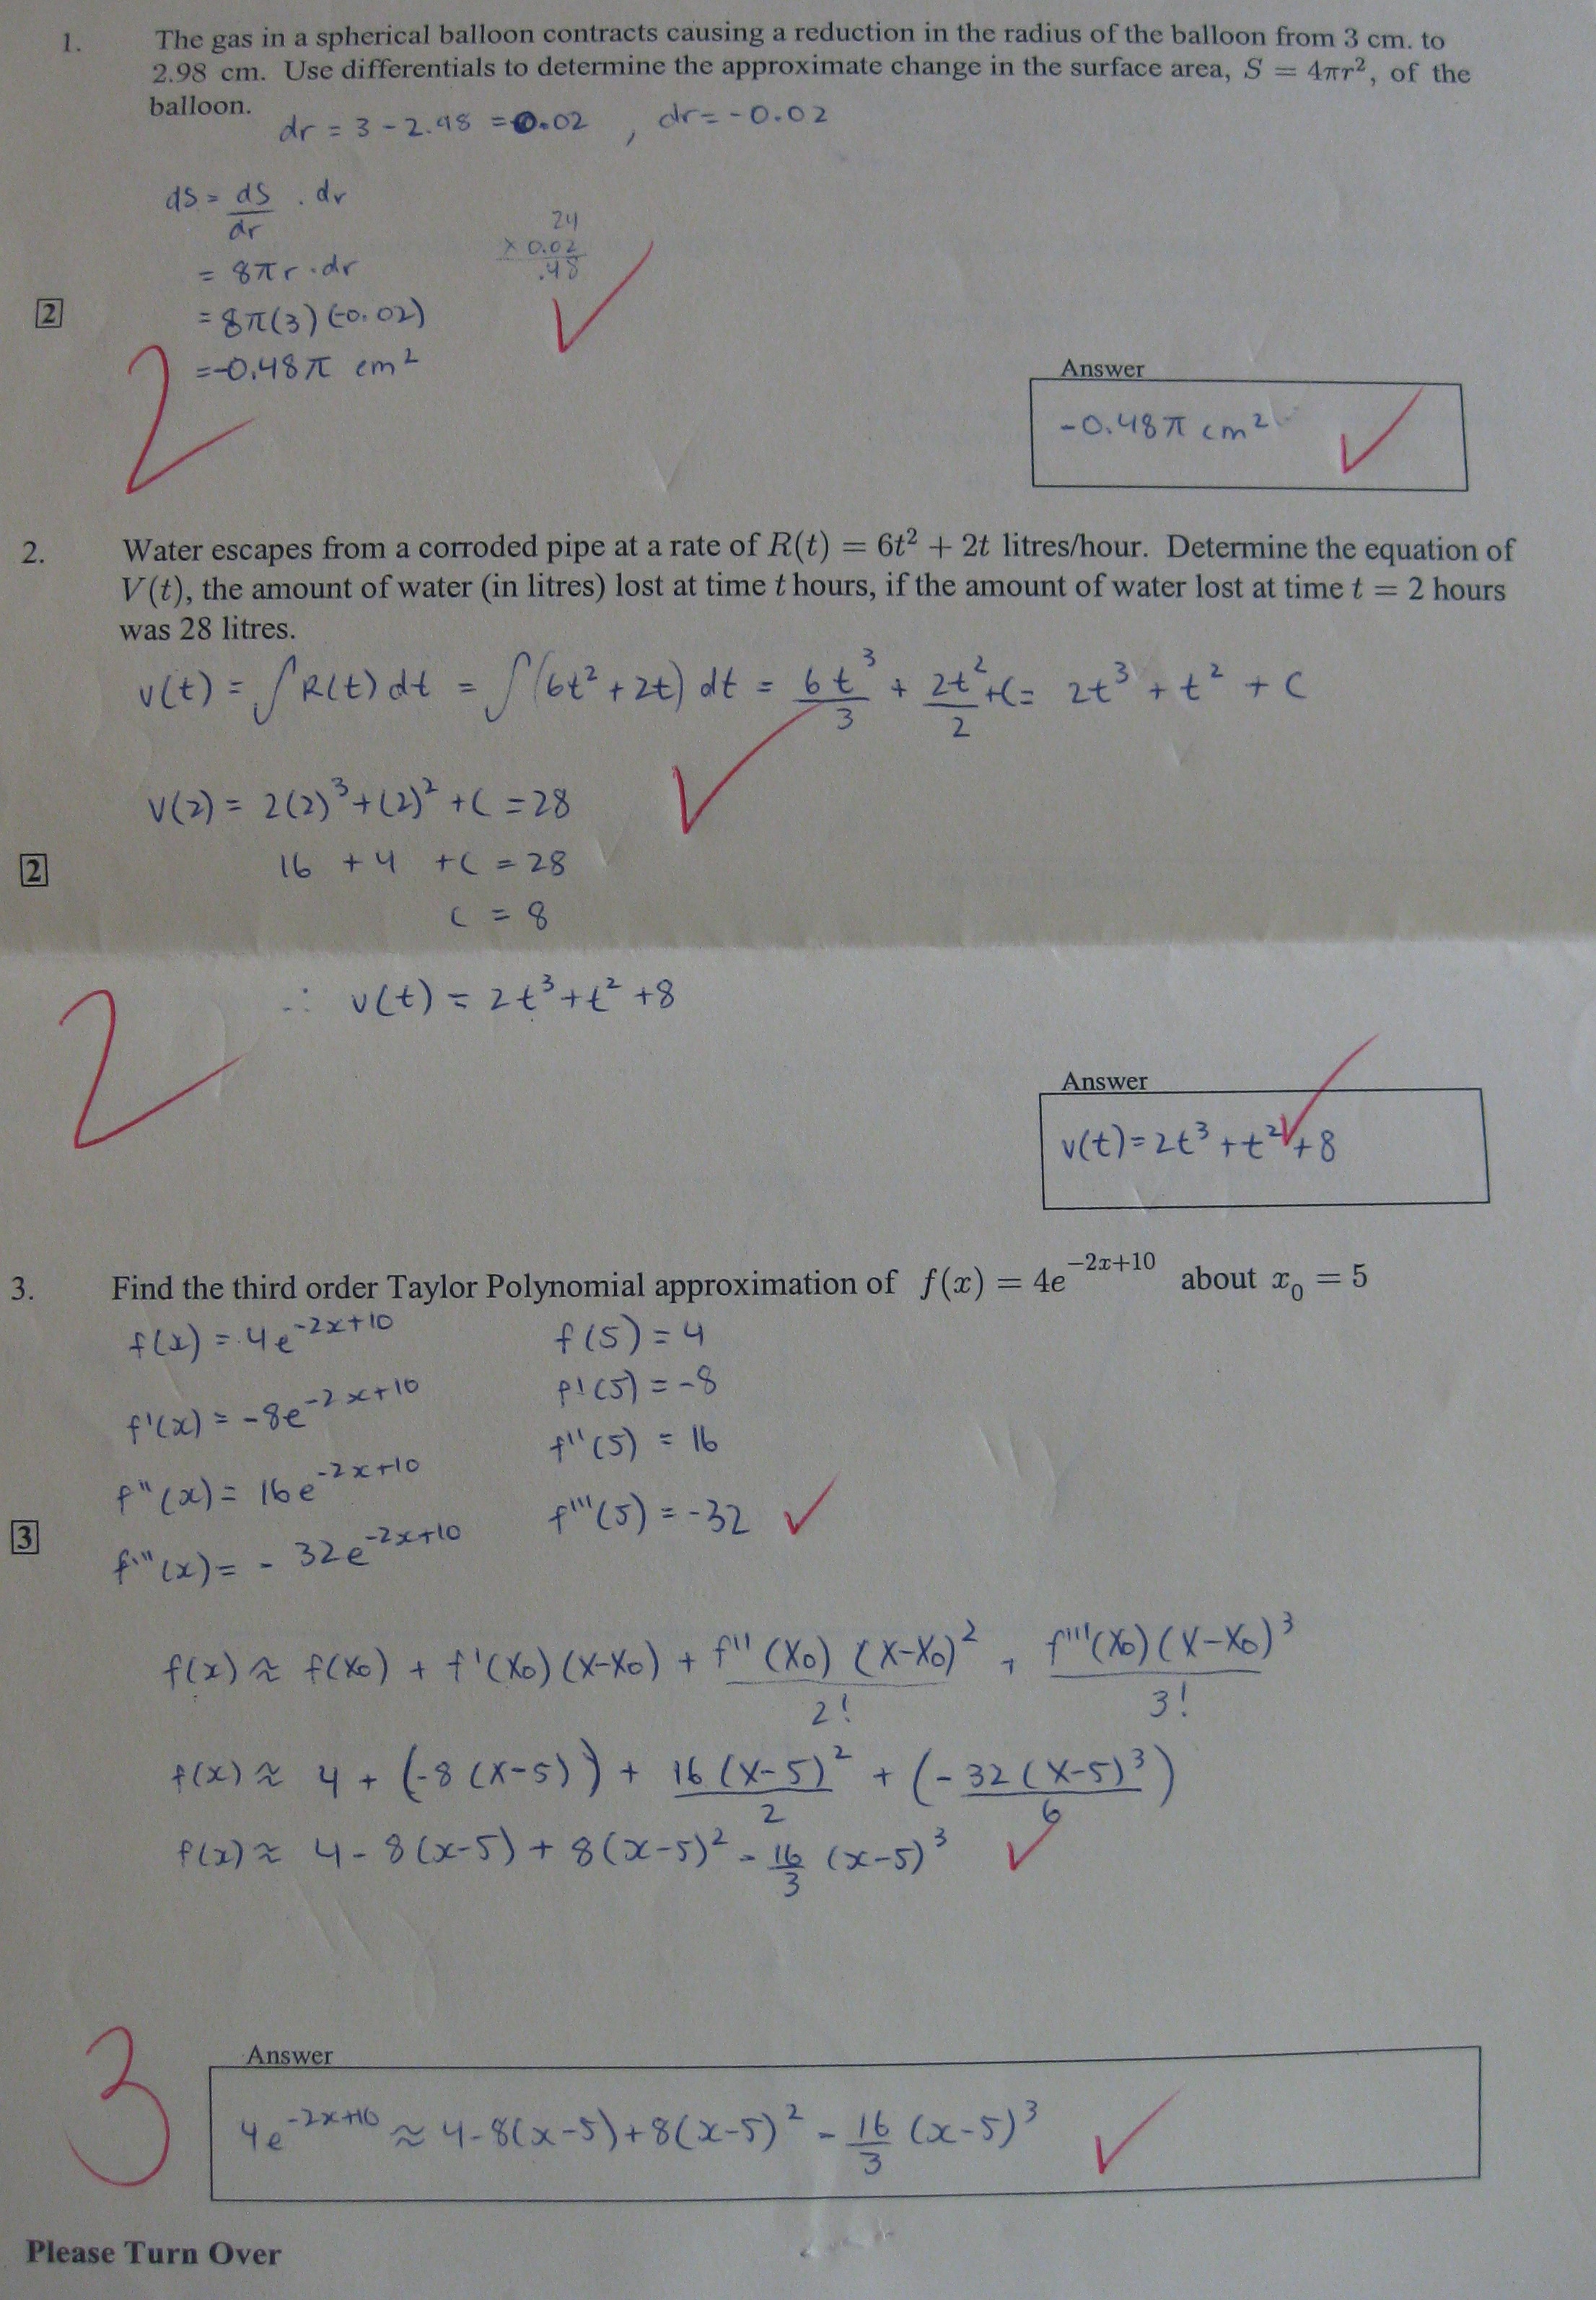 1. The gas in a spherical balloon contracts causing a reduction in the radius of the balloon from 3 cm. to
2.98 cm. Use differentials to determine the approximate change in the surface area, S = 4πr², of the
balloon.
dr = 3 - 2.98 = 0.02 , dr = -0.02
ds = dS/dr . dr
24
× 0.02
.48
= 8πr · dr
2
= 8π(3)(-0.02)
= -0.48π cm²
2
Answer
-0.48π cm²
2. Water escapes from a corroded pipe at a rate of R(t) = 6t² + 2t litres/hour. Determine the equation of
V(t), the amount of water (in litres) lost at time t hours, if the amount of water lost at time t = 2 hours
was 28 litres.
v(t) = ∫R(t)dt = ∫(6t² + 2t) dt = 6t³/3 + 2t²/2 + C = 2t³ + t² + C
V(2) = 2(2)³ + (2)² + C = 28
2
16 + 4 + C = 28
C = 8
∴ v(t) = 2t³ + t² + 8
2
Answer
v(t) = 2t³ + t² + 8
3. Find the third order Taylor Polynomial approximation of f(x) = 4e^(-2x+10) about x₀ = 5
f(x) = 4e^(-2x+10) f(5) = 4
f'(x) = -8e^(-2x+10) f'(5) = -8
f''(x) = 16e^(-2x+10) f''(5) = 16
3
f'''(x) = - 32e^(-2x+10) f'''(5) = -32
f(x) ≈ f(x₀) + f'(x₀)(x-x₀) + f''(x₀)(x-x₀)²/2! + f'''(x₀)(x-x₀)³/3!
f(x) ≈ 4 + (-8(x-5)) + 16(x-5)²/2 + (-32(x-5)³/6)
f(x) ≈ 4 - 8(x-5) + 8(x-5)² - 16/3 (x-5)³
3
Answer
4e^(-2x+10) ≈ 4 - 8(x-5) + 8(x-5)² - 16/3 (x-5)³
Please Turn Over